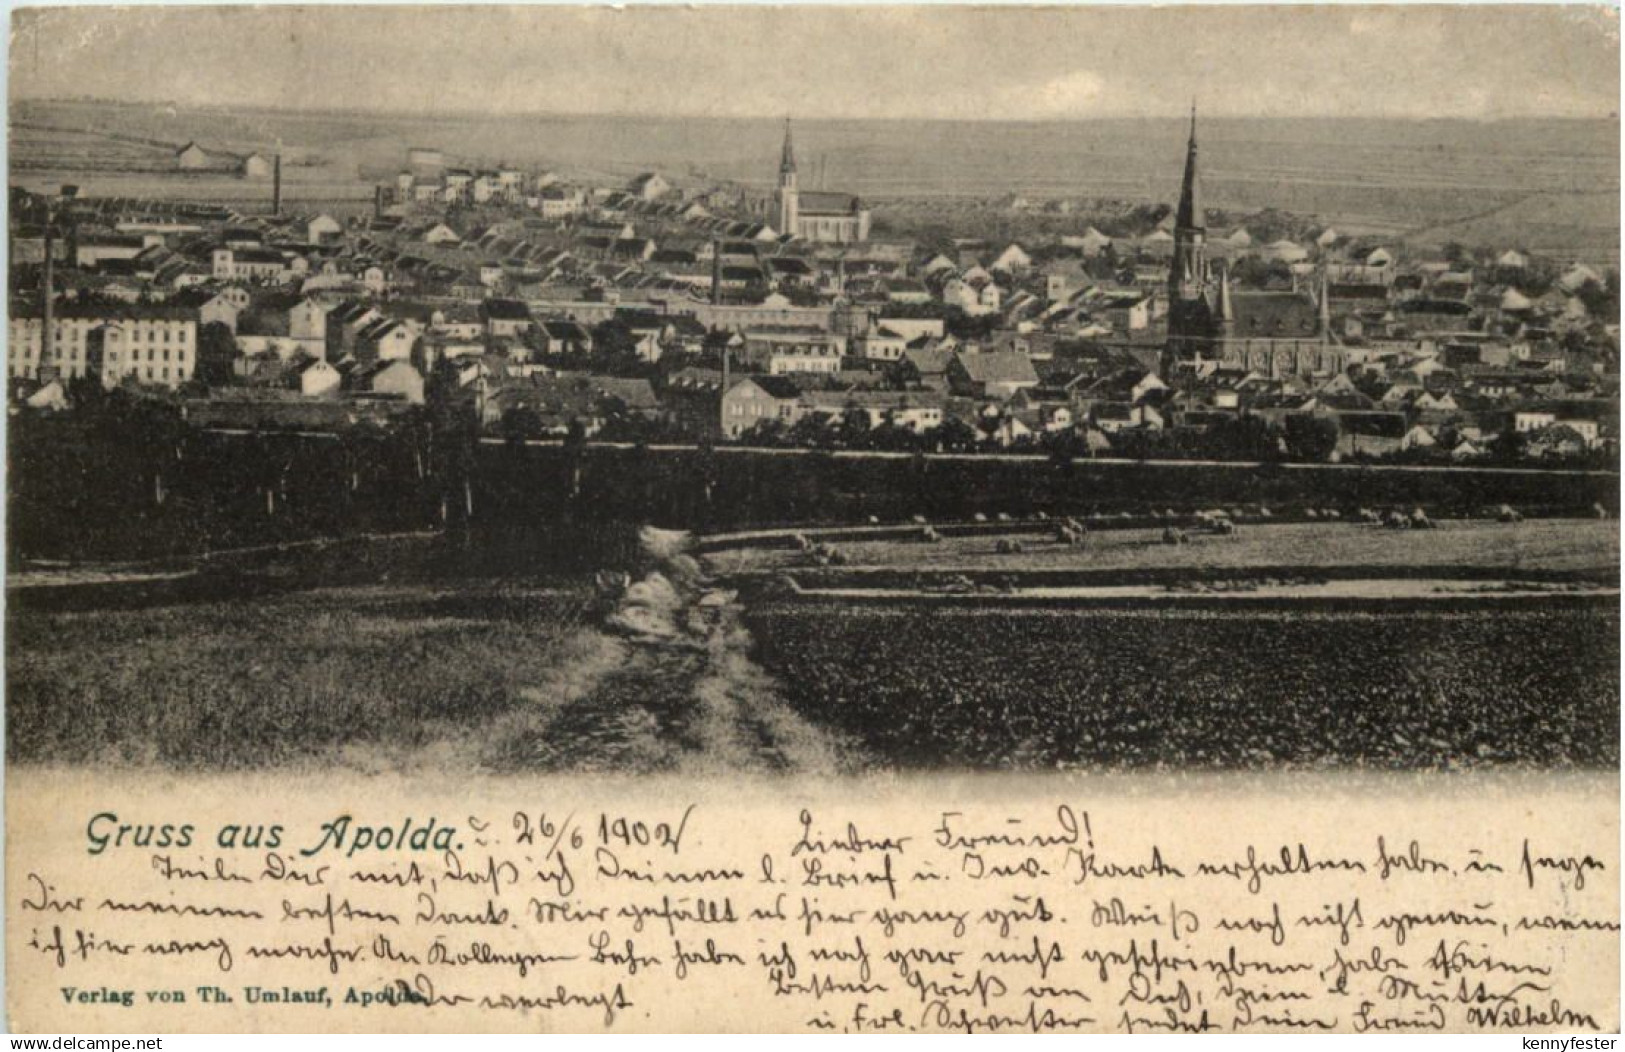 Gruss aus Apolda. d. 26/6 1902
Lieber Freund!
Teile Dir mit, daß ich Deinen l. Brief u. Karte erhalten habe. u sage
Dir meinen besten Dank. Mir gefällt es hier ganz gut. Weiß noch nicht genau, wenn
ich hier weg mache. An Kollegen habe ich noch gar nicht geschrieben, habe seine
verlegt.
Besten Gruß an Dich, Deine l. Mutter
u. Frl. Schwester sendet Dein Freund Wilhelm
Verlag von Th. Umlauf, Apolda.
delcampe.net
kennyfester